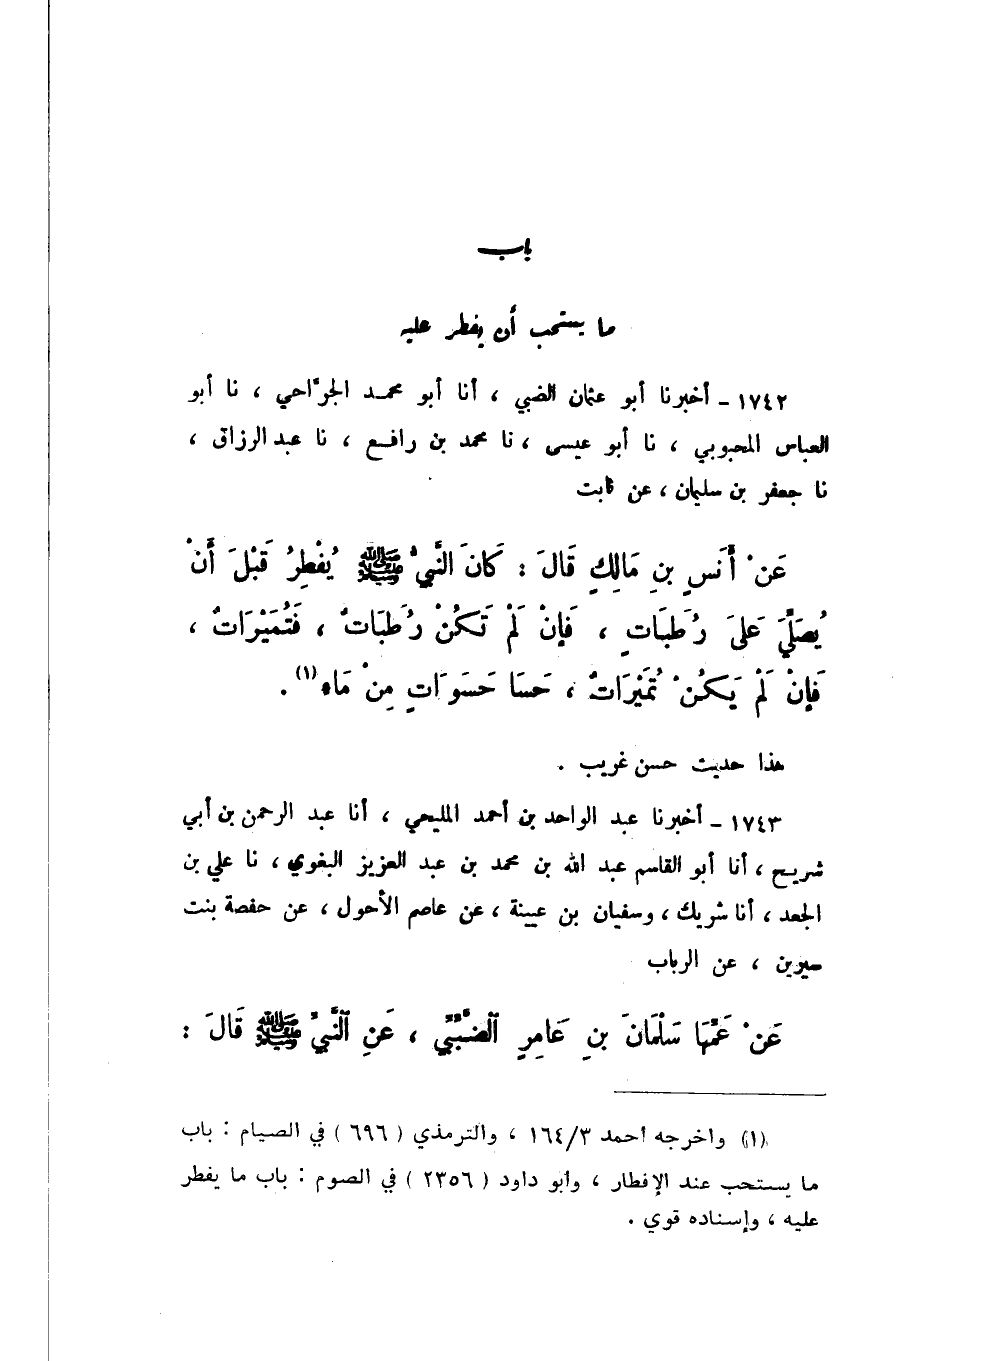 باب
ما يستحب أن يفطر عليه
١٧٤٢ - أخبرنا أبو عثمان الضبي ، أنا أبو محمد الجرَّاحي ، نا أبو
العباس المحبوبي ، نا أبو عيسى ، نا محمد بن رافع ، نا عبد الرزاق ،
نا جعفر بن سليمان ، عن ثابت
عَنْ أَنَسِ بنِ مَالِكٍ قَالَ : كَانَ النَّبيُّ ﷺ يُفْطِرُ قَبْلَ أَنْ
يُصَلِّيَ عَلىَ رُطَبَاتٍ ، فَإِنْ لَمْ تَكُنْ رُطَبَاتٌ ، فَتُمَيْرَاتٌ ،
فَإِنْ لَمْ يَكُنْ تُمَيْرَاتٌ ، حَسَا حَسَوَاتٍ مِنْ مَاءٍ (١) .
هذا حديث حسن غريب .
١٧٤٣ - أخبرنا عبد الواحد بن أحمد المليحي ، أنا عبد الرحمن بن أبي
شريح ، أنا أبو القاسم عبد الله بن محمد بن عبد العزيز البغوي ، نا علي بن
الجعد ، أنا شريك ، وسفيان بن عيينة ، عن عاصم الأحول ، عن حفصة بنت
سيرين ، عن الرباب
عَنْ عَمِّهَا سَلْمَانَ بنِ عَامِرٍ الضَّبِّيِّ ، عَنِ النَّبيِّ ﷺ قَالَ :
(١) واخرجه احمد ١٦٤/٣ ، والترمذي ( ٦٩٦ ) في الصيام : باب
ما يستحب عند الإفطار ، وابو داود ( ٢٣٥٦ ) في الصوم : باب ما يفطر
عليه ، وإسناده قوي .